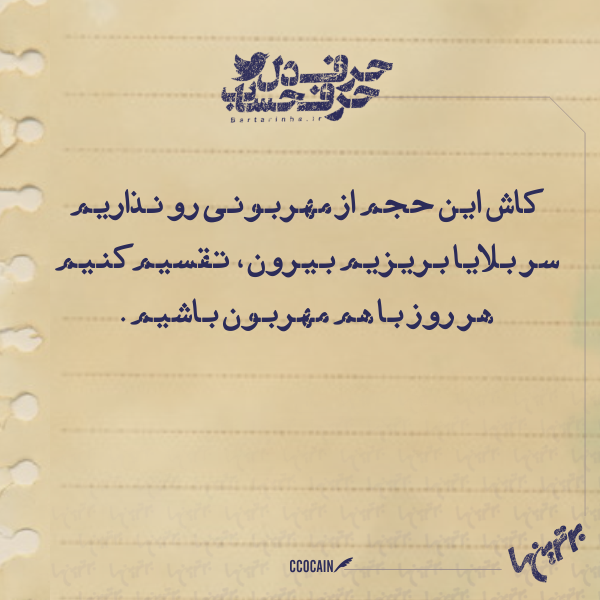 حرف دل
حرف حساب
Bartarinha.ir
کاش این حجم از مهربونی رو نذاریم
سر بلایا بریزیم بیرون، تقسیم کنیم
هر روز با هم مهربون باشیم .
CCOCAIN
برترین‌ها